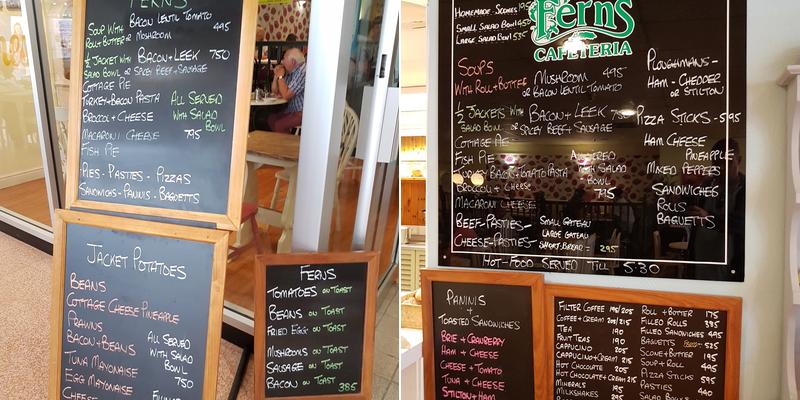 FERNS
BACON LENTIL TOMATO
SOUP WITH 495
ROLL+BUTTER OR MUSHROOM
½ JACKET WITH BACON+LEEK 750
SALAD BOWL OR SPICY BEEF+SAUSAGE
COTTAGE PIE
TURKEY+BACON PASTA ALL SERVED
BROCCOLI+CHEESE WITH SALAD
BOWL
MACARONI CHEESE 795
FISH PIE
PIES-PASTIES-PIZZAS
SANDWICHS-PANINIS-BAGUETTS
JACKET POTATOES
BEANS
COTTAGE CHEESE PINEAPPLE
PRAWNS
BACON+BEANS ALL SERVED
WITH SALAD
TUNA MAYONAISE BOWL
EGG MAYONAISE 750
CHEESE
FERNS
TOMATOES ON TOAST
BEANS ON TOAST
FRIED EGG ON TOAST
MUSHROOMS ON TOAST
SAUSAGE ON TOAST
BACON ON TOAST
385
HOMEMADE-SCONES
SMALL SALAD BOWL 450
LARGE SALAD BOWL 535
Ferns
CAFETERIA
SOUPS
WITH ROLL+BUTTER MUSHROOM 495
OR BACON LENTIL TOMATO
½ JACKETS WITH BACON+LEEK
SALAD BOWL OR SPICEY BEEF+SAUSAGE
COTTAGE PIE
FISH PIE
TURKEY BACON+TOMATO PASTA WITH SALAD
BROCOLI+CHEESE BOWL
MACARONI CHEESE 795
BEEF-PASTIES- SMALL GATEAU
LARGE GATEAU
CHEESE-PASTIES- SHORT-BREAD= 295
HOT-FOOD SERVED TILL 5-30
PLOUGHMANS-
HAM-CHEDDER
OR STILTON
PIZZA STICKS-595
HAM CHEESE
PINEAPPLE
MIXED PEPPERS
SANDWICHES
ROLLS
BAGUETTS
PANINIS
+
TOASTED SANDWICHES
BRIE+CRANBERRY
HAM+CHEESE
CHEESE+TOMATO
TUNA+CHEESE
STILTON+HAM
FILTER COFFEE 195/205
COFFEE+CREAM 205/215
TEA 190
FRUIT TEAS 190
CAPPUCINO 205
CAPPUCINO+CREAM 215
HOT CHOCOLATE 205
HOT CHOCOLATE+CREAM 215
MINERALS 195
MILKSHAKES
ROLL+BUTTER 175
FILLED ROLLS 385
FILLED SANDWICHES 495
BAGUETTS 525
SCONE+BUTTER 195
SOUP+ROLL 495
PIZZA STICKS 595
PASTIES 440
SALAD BOWLS